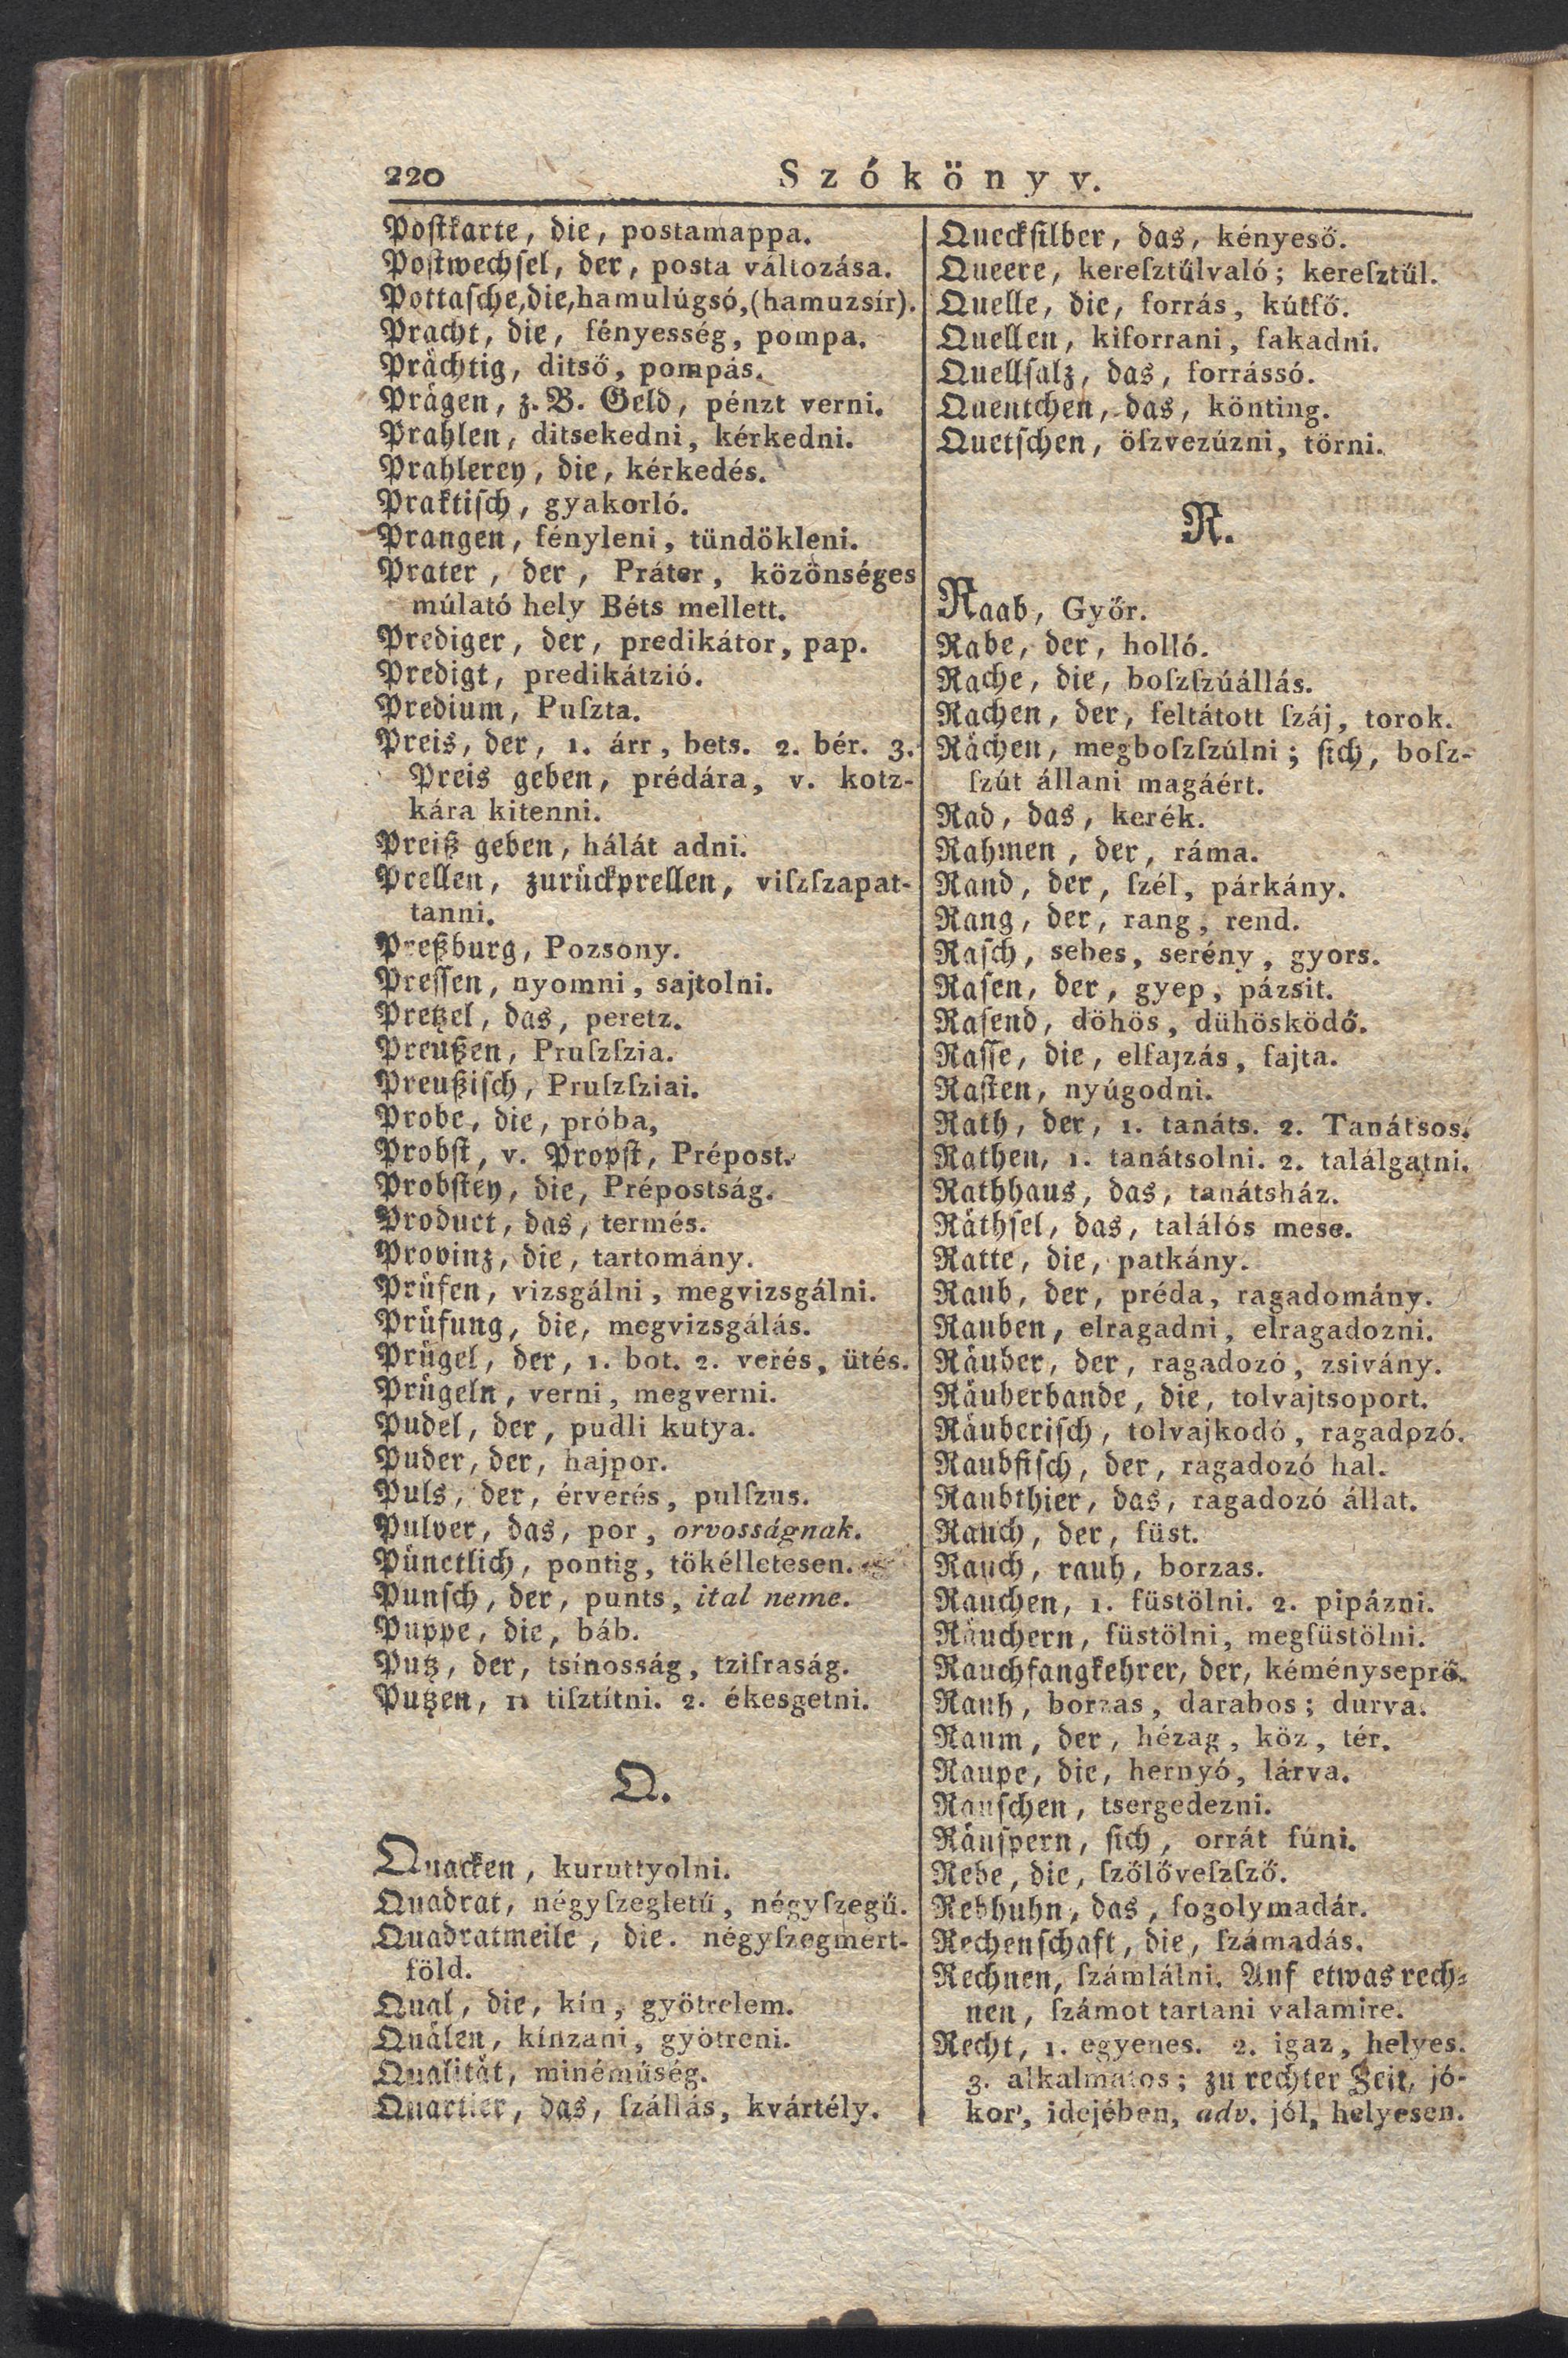 220 Szókönyv.
Poſtkarte, die, postamappa.
Poſtwechſel, der, posta változása.
Pottaſche, die, hamulúgsó, (hamuzsír).
Pracht, die, fényesség, pompa.
Prächtig, ditső, pompás.
Prägen, z. B. Geld, pénzt verni.
Prahlen, ditsekedni, kérkedni.
Prahlerey, die, kérkedés.
Praktiſch, gyakorló.
Prangen, fényleni, tündökleni.
Prater, der, Práter, közönséges
múlató hely Béts mellett.
Prediger, der, predikátor, pap.
Predigt, predikátzió.
Predium, Puſzta.
Preis, der, 1. árr, bets. 2. bér. 3.
Preis geben, prédára, v. kotz-
kára kitenni.
Preiß geben, hálát adni.
Prellen, zurückprellen, viſzſzapat-
tanni.
Preßburg, Pozsony.
Preſſen, nyomni, sajtolni.
Pretzel, das, peretz.
Preußen, Pruſzſzia.
Preußiſch, Pruſzſziai.
Probe, die, próba,
Probſt, v. Propſt, Prépost.
Probſtey, die, Prépostság.
Product, das, termés.
Provinz, die, tartomány.
Prüfen, vizsgálni, megvizsgálni.
Prüfung, die, megvizsgálás.
Prügel, der, 1. bot. 2. verés, ütés.
Prügeln, verni, megverni.
Pudel, der, pudli kutya.
Puder, der, hajpor.
Puls, der, érverés, pulſzus.
Pulver, das, por, orvosságnak.
Pünctlich, pontig, tökélletesen.
Punſch, der, punts, ital neme.
Puppe, die, báb.
Putz, der, tsínosság, tzifraság.
Putzen, 1. tiſztítni. 2. ékesgetni.
Q.
Quacken, kuruttyolni.
Quadrat, négyſzegletű, négyſzegű.
Quadratmeile, die. négyſzegmért-
föld.
Qual, die, kín, gyötrelem.
Quälen, kínzani, gyötreni.
Qualität, minéműség.
Quartier, das, ſzállás, kvártély.
Queckſilber, das, kényeső.
Queere, kereſztűlvaló; kereſztűl.
Quelle, die, forrás, kútfő.
Quellen, kiforrani, fakadni.
Quellſalz, das, forrássó.
Quentchen, das, könting.
Quetſchen, öſzvezúzni, törni.
R.
Raab, Győr.
Rabe, der, holló.
Rache, die, boſzſzúállás.
Rachen, der, feltátott ſzáj, torok.
Rächen, megboſzſzúlni; ſich, boſz-
ſzút állani magáért.
Rad, das, kerék.
Rahmen, der, ráma.
Rand, der, ſzél, párkány.
Rang, der, rang, rend.
Raſch, sebes, serény, gyors.
Raſen, der, gyep, pázsit.
Raſend, döhös, dühösködő.
Raſſe, die, elfajzás, fajta.
Raſten, nyúgodni.
Rath, der, 1. tanáts. 2. Tanátsos.
Rathen, 1. tanátsolni. 2. találgatni.
Rathhaus, das, tanátsház.
Räthſel, das, találós mese.
Ratte, die, patkány.
Raub, der, préda, ragadomány.
Rauben, elragadni, elragadozni.
Räuber, der, ragadozó, zsivány.
Räuberbande, die, tolvajtsoport.
Räuberiſch, tolvajkodó, ragadozó.
Raubfiſch, der, ragadozó hal.
Raubthier, das, ragadozó állat.
Rauch, der, füst.
Rauch, rauh, borzas.
Rauchen, 1. füstölni. 2. pipázni.
Räuchern, füstölni, megfüstölni.
Rauchfangkehrer, der, kéményseprő.
Rauh, borzas, darabos; durva.
Raum, der, hézag, köz, tér.
Raupe, die, hernyó, lárva.
Rauſchen, tsergedezni.
Räuſpern, ſich, orrát fúni.
Rebe, die, ſzőlőveſzſző.
Rebhuhn, das, fogolymadár.
Rechenſchaft, die, ſzámadás.
Rechnen, ſzámlálni. Auf etwas rech-
nen, ſzámot tartani valamire.
Recht, 1. egyenes. 2. igaz, helyes.
3. alkalmatos; zu rechter Zeit, jó-
kor, idejében, adv. jól, helyesen.